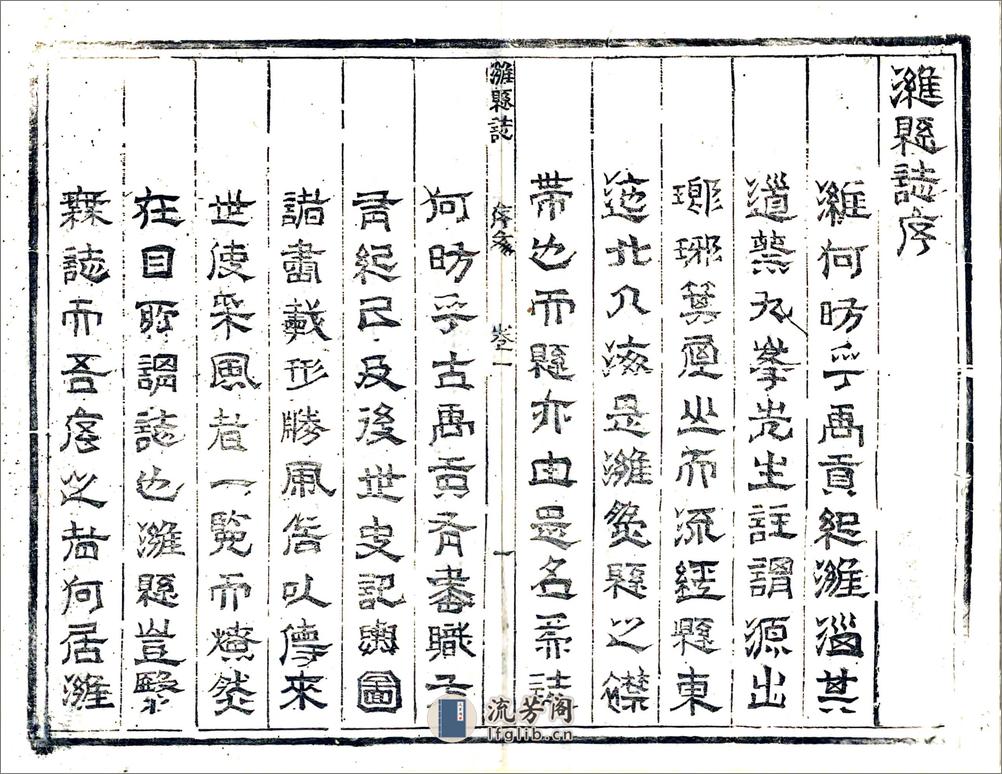 濰縣誌序
濰何昉乎禹貢紀濰淄其
道蔡九峯先生註謂源出
瑯琊箕屋山而流經縣東
迤北入海是濰縣之襟
帶也而縣亦由是名焉誌
濰縣誌 序 卷一 一
何昉乎古禹貢有書職方
有紀已及後世史記輿圖
諸書載形勝風俗以傳來
世使采風者一覧而燎然
在目所謂誌也濰縣豈繄
無誌而吾序之者何居濰
流芳阁
lfglib.cn